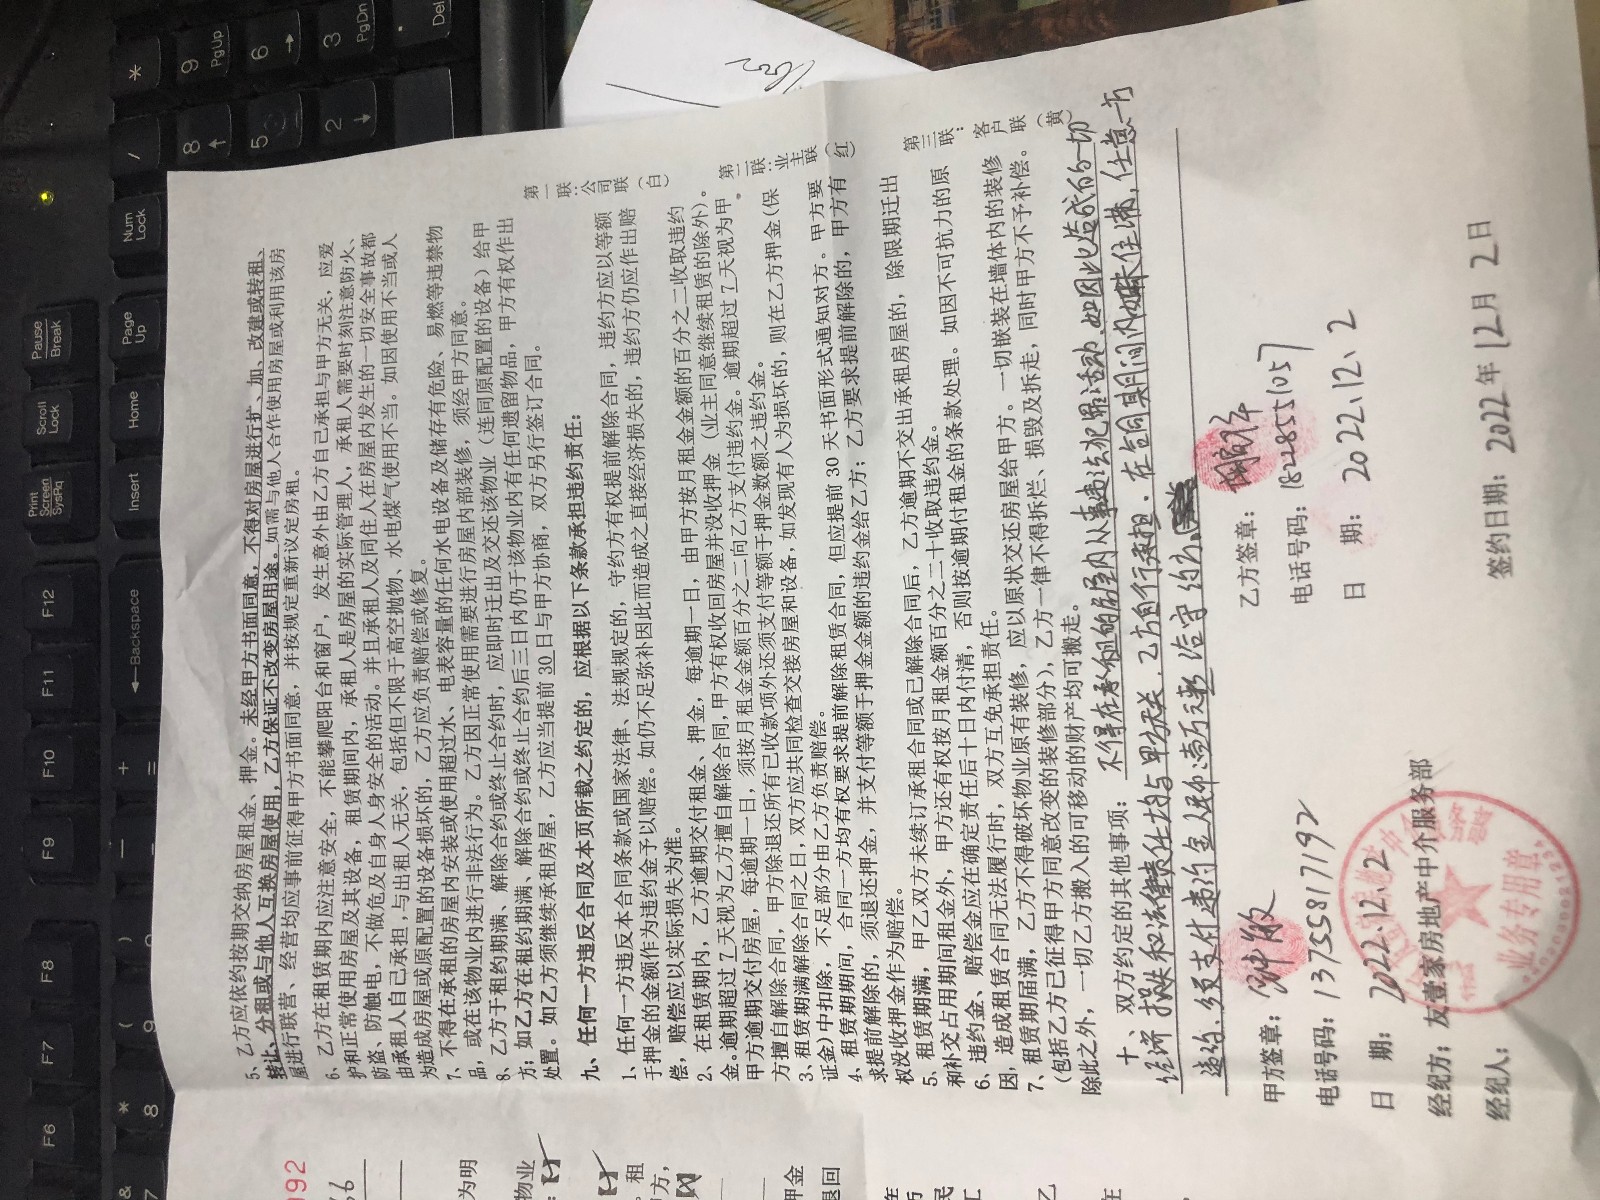 5、乙方应依约按期交纳房屋租金、押金。未经甲方书面同意，不得对房屋进行扩、加、改建或转租、
转让、分租或与他人互换房屋使用，乙方保证不改变房屋用途。如需与他人合作使用房屋或利用该房
屋进行联营、经营均应事前征得甲方书面同意，并按规定重新议定房租。
6、乙方在租赁期内应注意安全，不能攀爬阳台和窗户，发生意外由乙方自己承担与甲方无关，应爱
护和正常使用房屋及其设备，租赁期间内，承租人是房屋的实际管理人，承租人需要时刻注意防火、
防盗、防触电，不做危及自身人身安全的活动。并且承租人及同住人在房屋内发生的一切安全事故都
由承租人自己承担，与出租人无关，包括但不限于高空抛物、水电煤气使用不当。如因使用不当或人
为造成房屋或原配置的设备损坏的，乙方应负责赔偿或修复。
7、不得在承租的房屋内安装或使用超过水、电表容量的任何水电设备及储存有危险、易燃等违禁物
品，或在该物业内进行非法行为。乙方因正常使用需要进行房屋内部装修，须经甲方同意。
8、乙方于租约期满、解除合约或终止合约时，应即时迁出及交还该物业（连同原配置的设备）给甲
方；如乙方在租约期满、解除合约或终止合约后三日内仍于该物业内有任何遗留物品，甲方有权作出
处置。如乙方须继续承租房屋，乙方应当提前30日与甲方协商，双方另行签订合同。
九、任何一方违反合同及本页所载之约定的，应根据以下条款承担违约责任：
1、任何一方违反本合同条款或国家法律、法规规定的，守约方有权提前解除合同，违约方应以等额
于押金的金额作为违约金予以赔偿。如仍不足弥补因此而造成之直接经济损失的，违约方仍应作出赔
偿，赔偿应以实际损失为准。
2、在租赁期内，乙方逾期交付租金、押金，每逾期一日，由甲方按月租金金额的百分之二收取违约
金。逾期超过7天视为乙方擅自解除合同，甲方有权收回房屋并没收押金（业主同意继续租赁的除外）。
甲方逾期交付房屋，每逾期一日，须按月租金金额百分之二向乙方支付违约金。逾期超过7天视为甲
方擅自解除合同，甲方除退还所有已收款项外还须支付等额于押金数额之违约金。
3、租赁期满解除合同之日，双方应共同检查交接房屋和设备，如发现有人为损坏的，则在乙方押金（保
证金）中扣除，不足部分由乙方负责赔偿。
4、租赁期期间，合同一方均有权要求提前解除租赁合同，但应提前30天书面形式通知对方。甲方要
求提前解除的，须退还押金，并支付等额于押金金额的违约金给乙方；乙方要求提前解除的，甲方有
权没收押金作为赔偿。
5、租赁期满，甲乙双方未续订承租合同或已解除合同后，乙方逾期不交出承租房屋的，除限期迁出
和补交占用期间租金外，甲方还有权按月租金额百分之二十收取违约金。
6、违约金、赔偿金应在确定责任后十日内付清，否则按逾期付租金的条款处理。如因不可抗力的原
因，造成租赁合同无法履行时，双方互免承担责任。
7、租赁期届满，乙方不得破坏物业原有装修，应以原状交还房屋给甲方。一切嵌装在墙体内的装修
（包括乙方已征得甲方同意改变的装修部分），乙方一律不得拆烂、损毁及拆走，同时甲方不予补偿。
除此之外，一切乙方搬入的可移动的财产均可搬走。
十、双方约定的其他事项：不得在承租的屋内从事违法犯罪活动如因此造成的一切
经济损失和法律责任均与甲方无关，乙方自行承担。在合同其期间内
违约，须支付违约金人民币壹万元整 信守约
甲方签章：
电话号码：13755817192
日 期：2022.12.2
乙方签章：
电话号码：18228555107
日 期：2022.12.2
经纪方：友壹家房地产中介服务部
经纪人：
签约日期：2022年12月2日
业务专用章
第一联：公司联（白）
第二联：业主联（红）
第三联：客户联（黄）
992
为明
物业
租
方，
押金
退回
F6
F7
F8
F9
F10
F11
F12
Print Screen SysRq
Scroll Lock
Pause Break
Backspace
Insert
Home
Page Up
Num Lock
/
*
8
9 PgUp
5
6
2
3 PgDn
Del